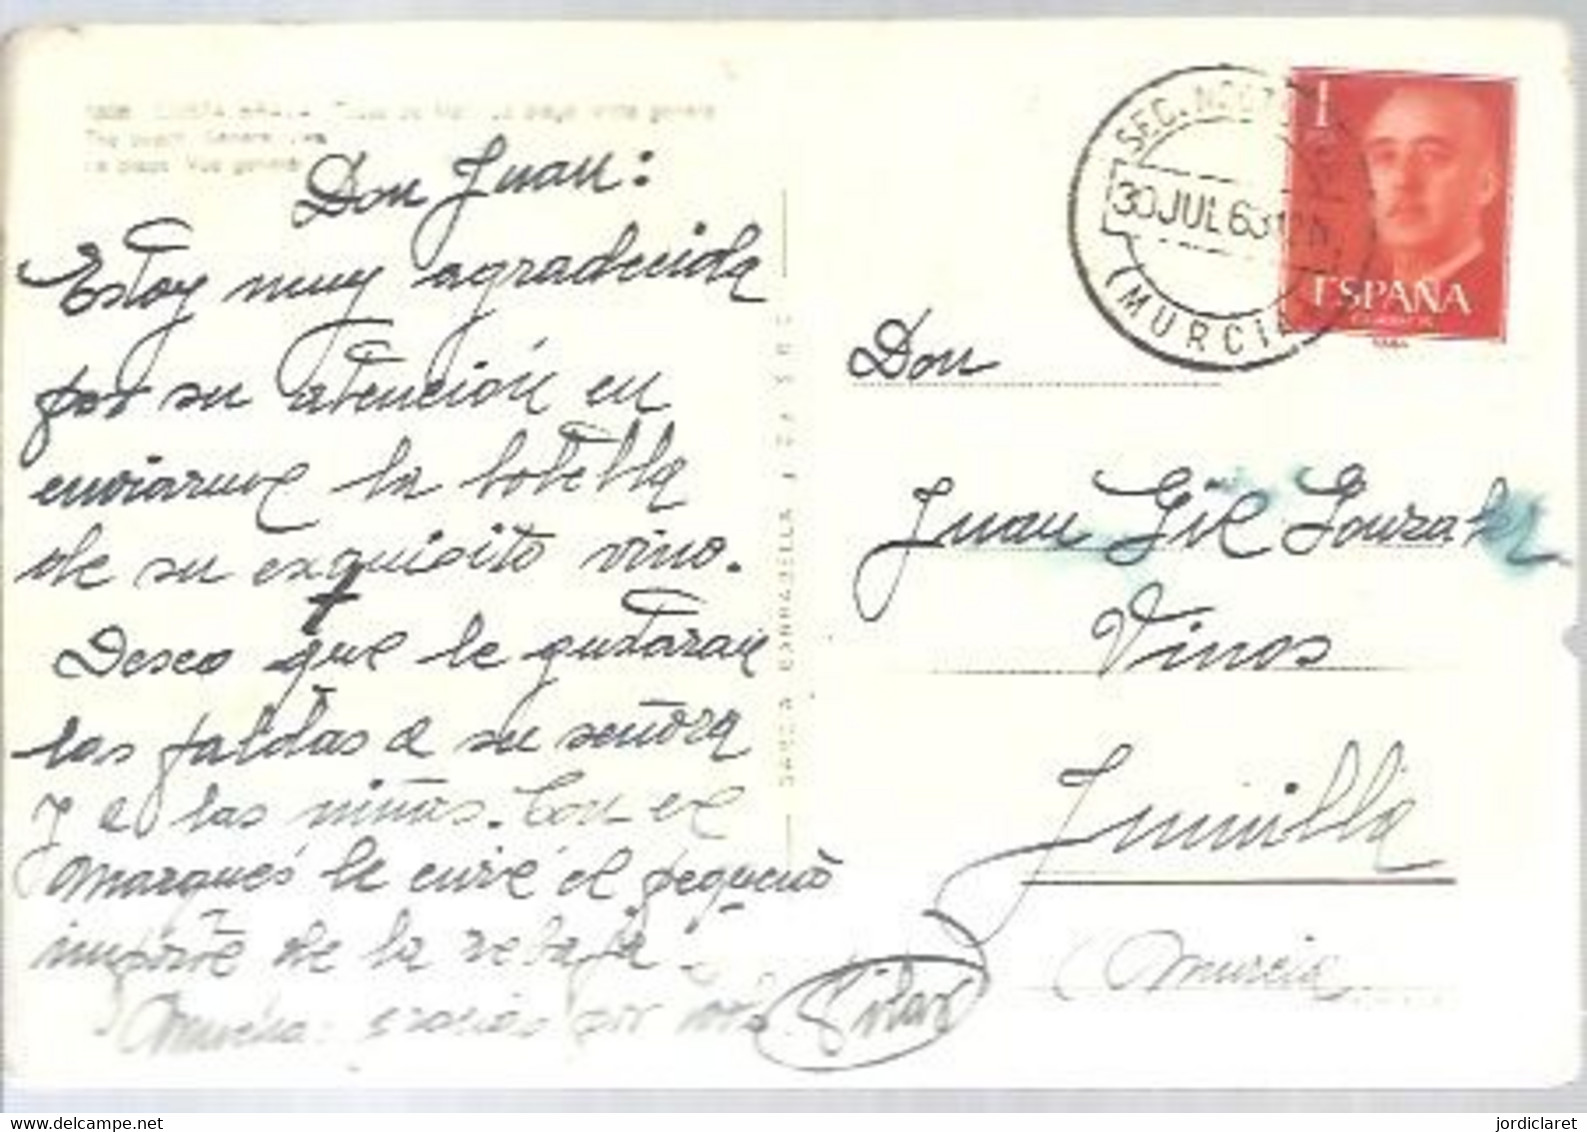 Don Juan:
Estoy muy agradecida
por su atención en
enviarme la botella
de su exquisito vino.
Deseo que le gustaran
las faldas a su señora
y a las niñas. Con el
Marqués le envié el pequeño
importe de la rebaja.
Muchas gracias por todo
Pilar
SEC. NOCT
30 JUL 63
(MURCIA)
1
ESPAÑA
Don
Juan Gil Gonzalez
Vinos
Jumilla
(Murcia
The beach General view
La plage Vue générale
GARCIA GARRABELLA
www.delcampe.net
jordiclaret